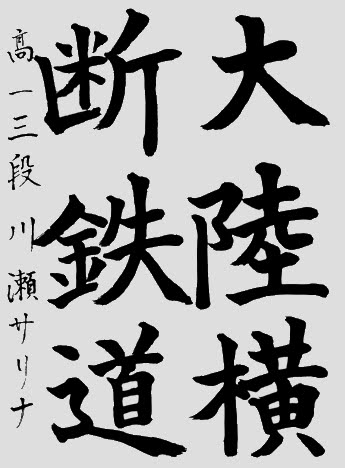 大陸横
断鉄道
高一三段川瀬サリナ